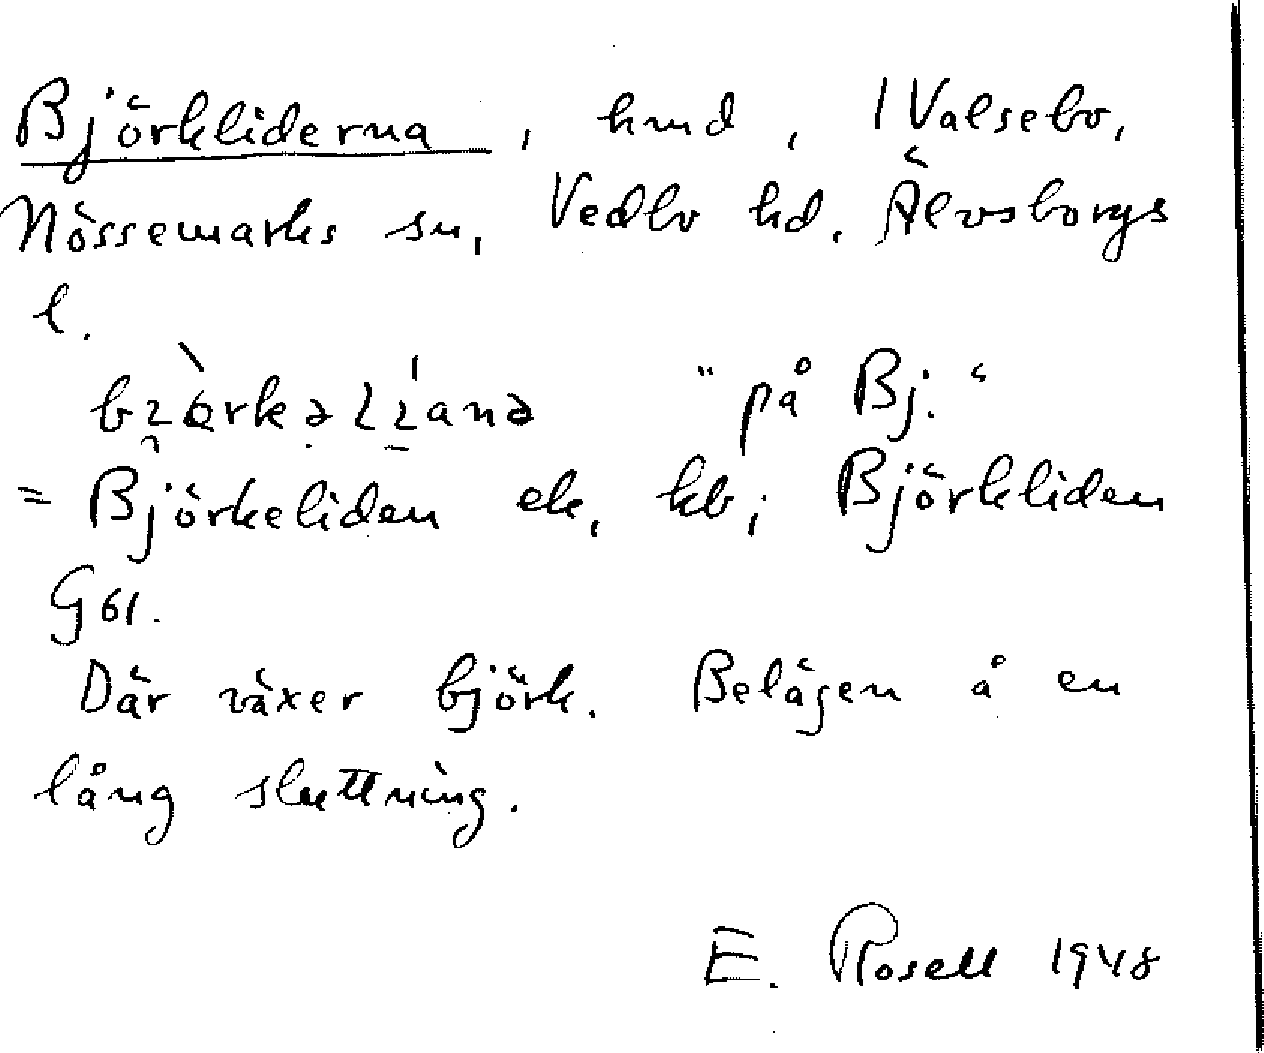 Björkliderna, hmd, 1 Valsebo,
Nössemarks sn, Vedbo hd. Älvsborgs
l.
"på Bj."
= Björkeliden ek, kb; Björkliden
G61.
Där växer björk. Belägen å en
lång sluttning.
E. Rosell 1948